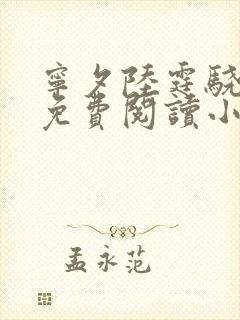 寧夕陸霆驍
免費閱讀小
孟永范